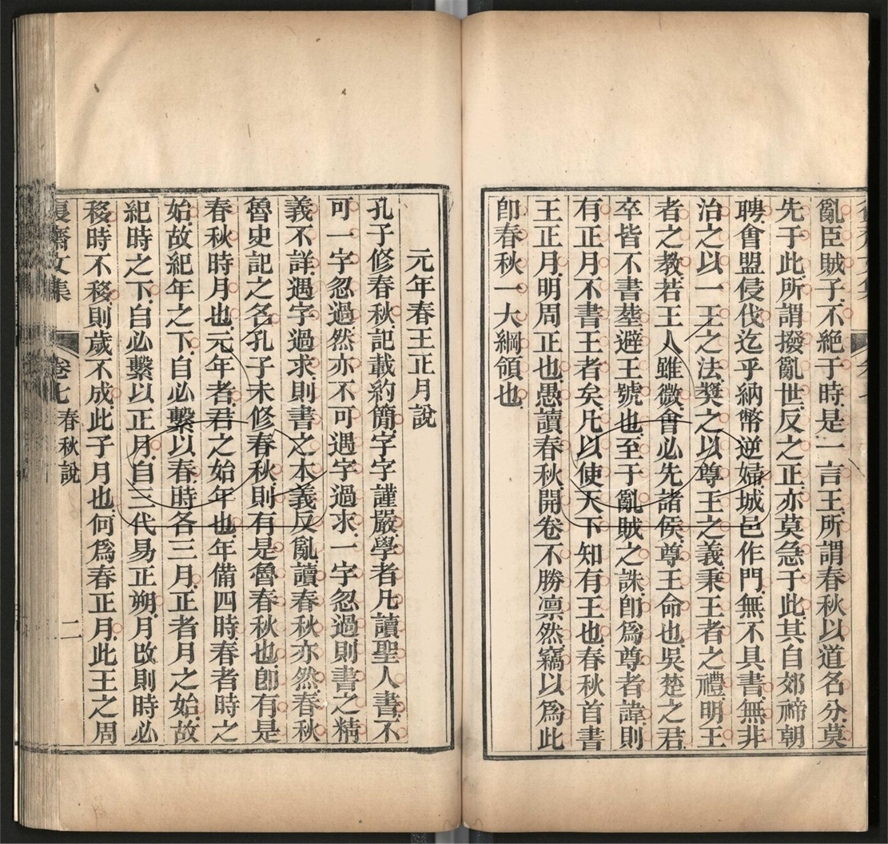 亂臣賊子不絕于時是一言王所謂春秋以道名分莫
先于此所謂撥亂世反之正亦莫急于此其自郊禘朝
聘會盟侵伐迄乎納幣逆婦城邑作門無不具書無非
治之以一王之法奬之以尊王之義秉王者之禮明王
者之教若王人雖微會必先諸侯尊王命也吳楚之君
卒皆不書塟避王號也至于亂賊之誅卽爲尊者諱則
有正月不書王者矣凡以使天下知有王也春秋首書
王正月明周正也愚讀春秋開卷不勝凛然竊以爲此
卽春秋一大綱領也
元年春王正月說
孔子修春秋記載約簡字字謹嚴學者凡讀聖人書不
可一字忽過然亦不可遇字過求一字忽過則書之精
義不詳遇字過求則書之本義反亂讀春秋亦然春秋
魯史記之名孔子未修春秋則有是魯春秋也卽有是
春秋時月也元年者君之始年也年備四時春者時之
始故紀年之下自必繫以春時各三月正者月之始故
紀時之下自必繫以正月自三代易正朔月改則時必
移時不移則歲不成此子月也何爲春正月此王之周
復齋文集 卷七 春秋說 二